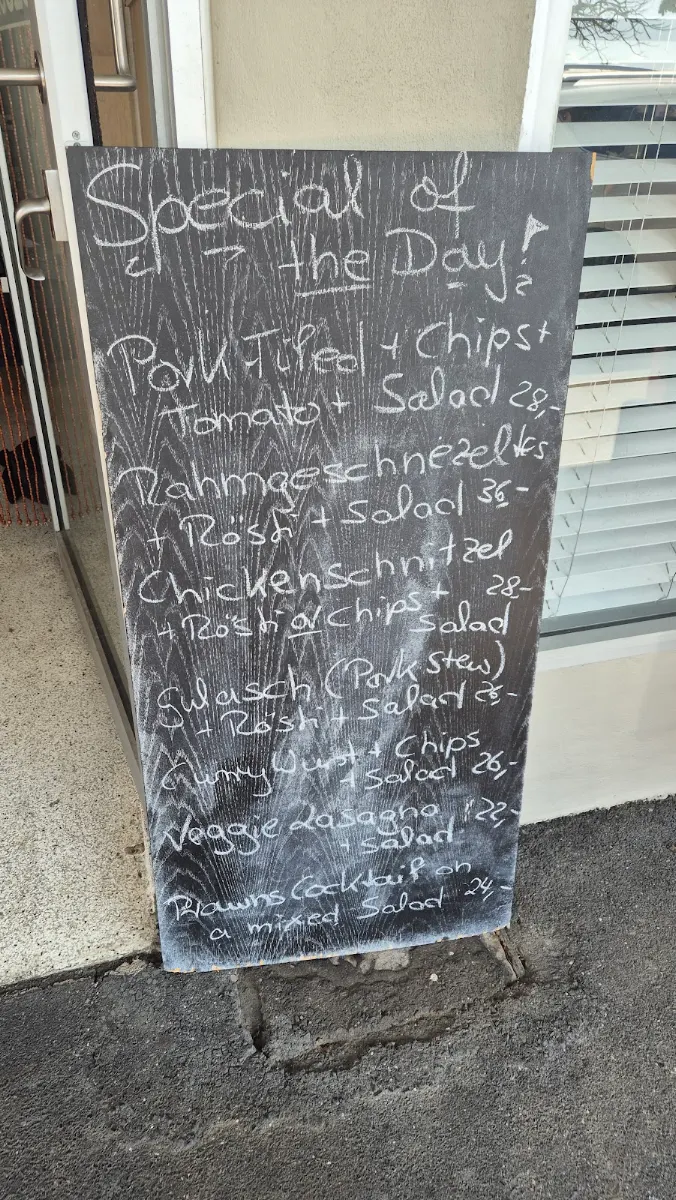 Special of
the Day!
Pork Filed + Chips +
Tomato + Salad 28,-
Rahmgeschnezeltes
+ Rösti + Salad 36-
Chickenschnitzel
+ Rösti or Chips + 28-
Salad
Gulasch (Pork Stew)
+ Rösti + Salad 26,-
Curry Wurst + Chips
+ Salad 26,-
Veggie Lasagna 22,-
+ Salad
Prawns Cocktail on
a mixed Salad 24,-